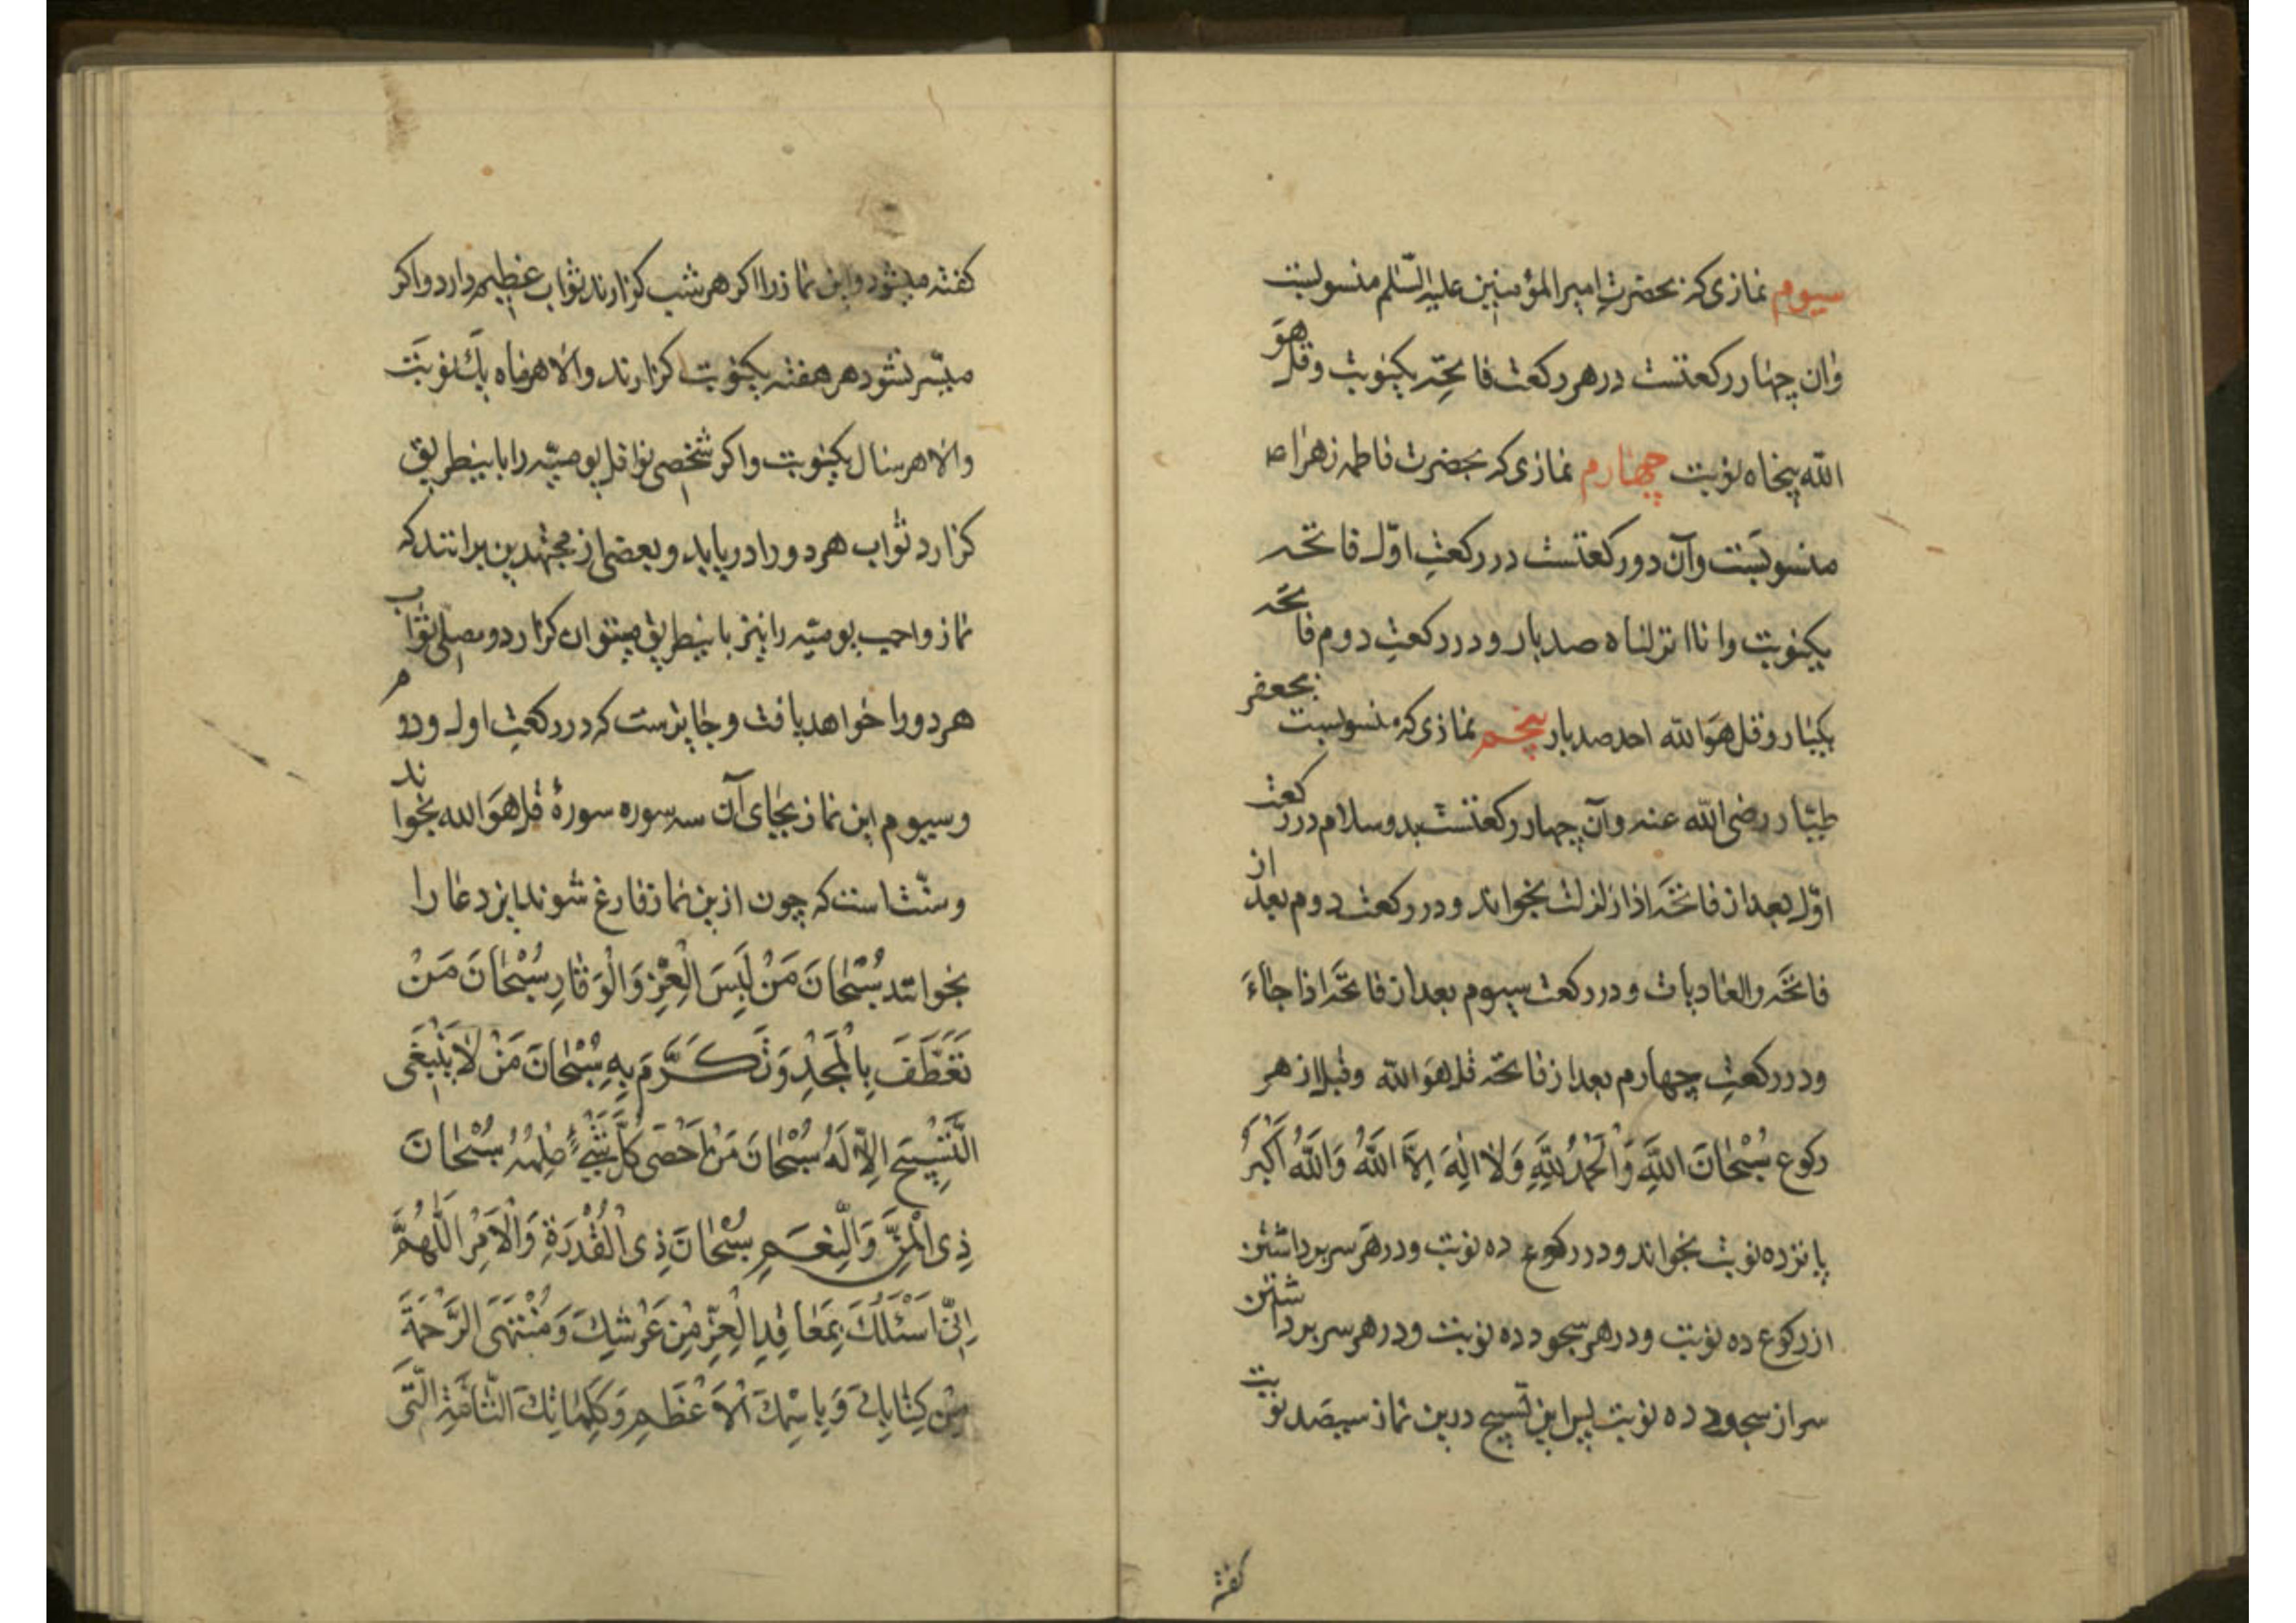 سیوم نمازی که بحضرت امیر المؤمنین علیه السّلم منسوبست
وان چهار رکعتست در هر رکعت فاتحه یکنوبت وقل هو
الله پنجاه نوبت چهارم نمازی که بحضرت فاطمه زهرا ص
منسوبست وآن دو رکعتست در رکعت اوّل فاتحه
یکنوبت وانا انزلناه صد بار و در رکعت دوم فاتحه
یکبار و قل هو الله احد صد بار پنجم نمازی که منسوبست بجعفر
طیّار رضی الله عنه وآن چهار رکعتست بدو سلام در رکعت
اوّل بعد از فاتحه اذا زلزلت بخواند و در رکعت دوم بعد از
فاتحه والعادیات و در رکعت سیوم بعد از فاتحه اذا جاء
و در رکعت چهارم بعد از فاتحه قل هو الله وقبل از هر
رکوع سُبْحانَ اللهِ وَالْحَمْدُ لِلّهِ وَلا الِهَ اِلاَّ اللهُ وَاللهُ اَکْبَرُ
پانزده نوبت بخواند و در رکوع ده نوبت و در هر سر برداشتن
از رکوع ده نوبت و در هر سجود ده نوبت و در هر سر برداشتن
سر از سجود ده نوبت پس این تسبیح درین نماز سیصد نوبت
کفته
کفته میشود واین نماز را اکر هر شب کزارند ثواب عظیم دارد واکر
میسّر نشود هر هفته یکنوبت کزارند والا هر ماه یک نوبت
والا هر سال یکنوبت واکر شخصی نوافل یومیّه را باینطریق
کزارد ثواب هر دو را دریابد وبعضی از مجتهدین برانند که
نماز واجب یومیّه را نیز باینطریق میتوان کزارد ومصلی ثواب
هر دو را خواهد یافت وجایزست که در رکعت اول ودوم
وسیوم این نماز بجای آن سه سوره سورۀ قل هو الله بخوانند
وسنّت است که چون ازین نماز فارغ شوند این دعا را
بخوانند سُبْحانَ مَنْ لَبِسَ الْعِزَّ وَالْوَقارِ سُبْحانَ مَنْ
تَعَطَّفَ بِالْمَجْدِ وَتَکَرَّمَ بِهِ سُبْحانَ مَنْ لا یَنْبَغی
التَّسْبیحِ اِلاّ لَهُ سُبْحانَ مَنْ اَحْصی کُلَّ شَیْءٍ عِلْمُهُ سُبْحانَ
ذِی الْمَنِّ وَالنِّعَمِ سُبْحانَ ذِی الْقُدْرَةِ وَالْاَمْرِ اَللّهُمَّ
اِنّی اَسْئَلُکَ بِمَعاقِدِ الْعِزِّ مِنْ عَرْشِکَ وَمُنْتَهَی الرَّحْمَةِ
مِنْ کِتابِکَ وَبِاسْمِکَ الْاَعْظَمِ وَکَلِماتِکَ التّامَّةِ الَّتی